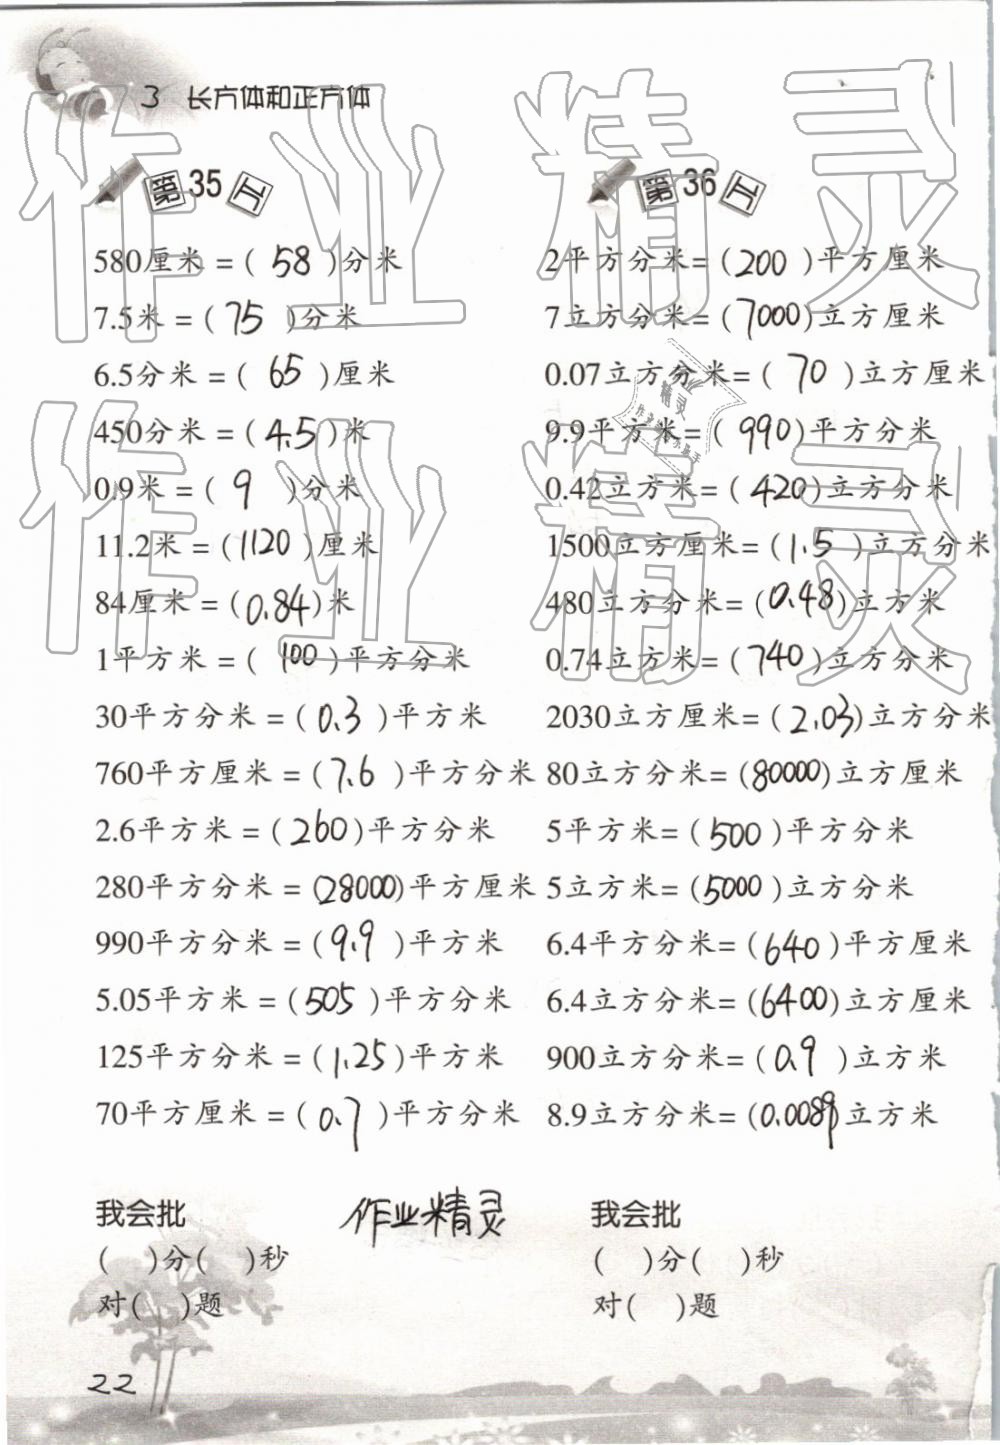 3 长方体和正方体
第35工
580厘米=(58)分米
7.5米=(75)分米
6.5分米=(65)厘米
450分米=(4.5)米
0.9米=(9)分米
11.2米=(1120)厘米
84厘米=(0.84)米
1平方米=(100)平方分米
30平方分米=(0.3)平方米
760平方厘米=(7.6)平方分米
2.6平方米=(260)平方分米
280平方分米=(28000)平方厘米
990平方分米=(9.9)平方米
5.05平方米=(505)平方分米
125平方分米=(1.25)平方米
70平方厘米=(0.7)平方分米
我会批
( )分( )秒
对( )题
第36工
2平方分米=(200)平方厘米
7立方分米=(7000)立方厘米
0.07立方分米=(70)立方厘米
9.9平方米=(990)平方分米
0.42立方米=(420)立方分米
1500立方厘米=(1.5)立方分米
480立方分米=(0.48)立方米
0.74立方米=(740)立方分米
2030立方厘米=(2.03)立方分米
80立方分米=(80000)立方厘米
5平方米=(500)平方分米
5立方米=(5000)立方分米
6.4平方分米=(640)平方厘米
6.4立方分米=(6400)立方厘米
900立方分米=(0.9)立方米
8.9立方分米=(0.0089)立方米
我会批
( )分( )秒
对( )题
作业精灵
22
作业精灵
作业精灵